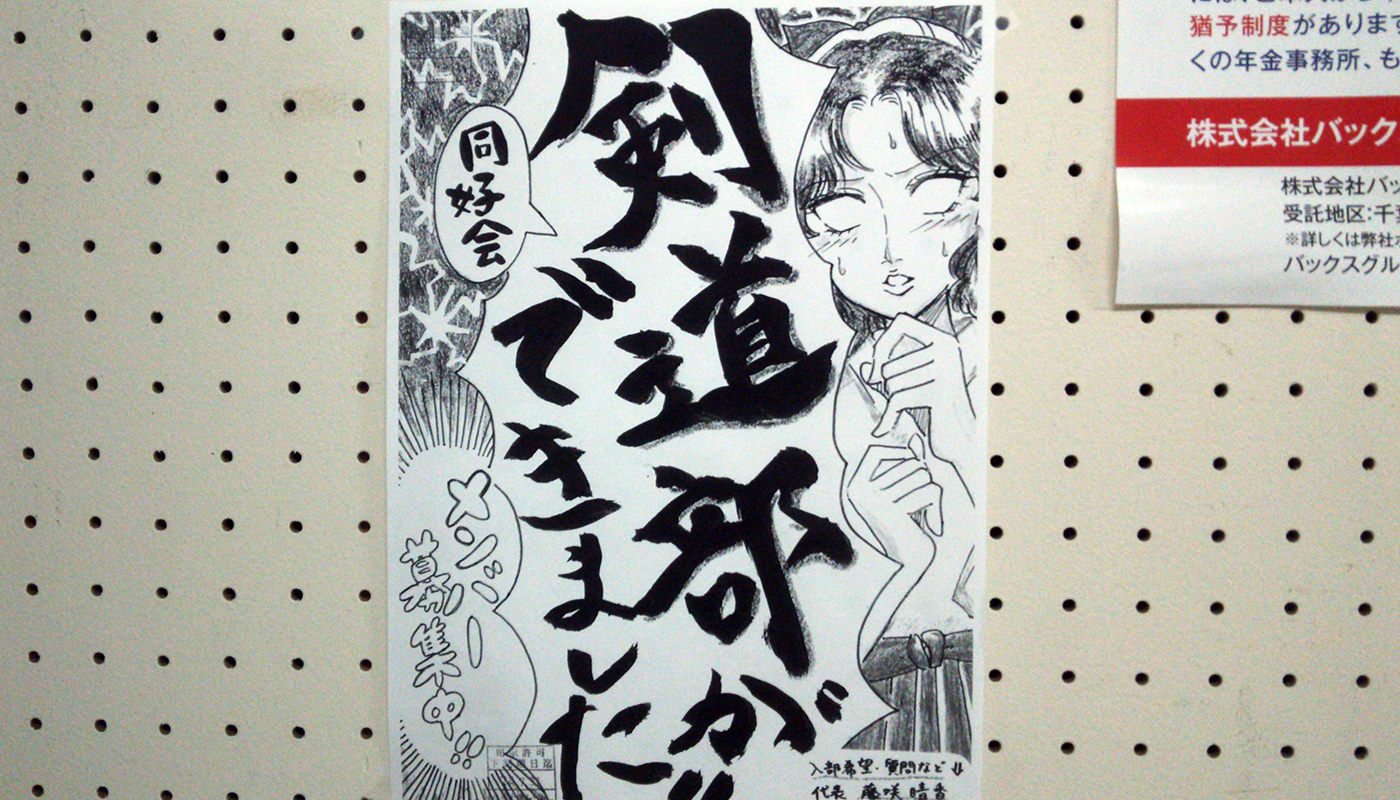 剣道部が
できました!!
同好会
メンバー
募集中!!
入部希望・質問など↓
代表 藤咲 晴香
猶予制度があります
くの年金事務所、も
株式会社バック
株式会社バッ
受託地区:千
※詳しくは弊社
バックスグル